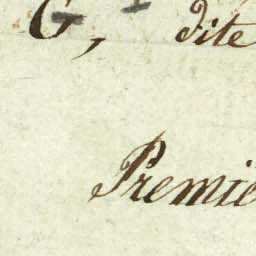 C, dite
Premie